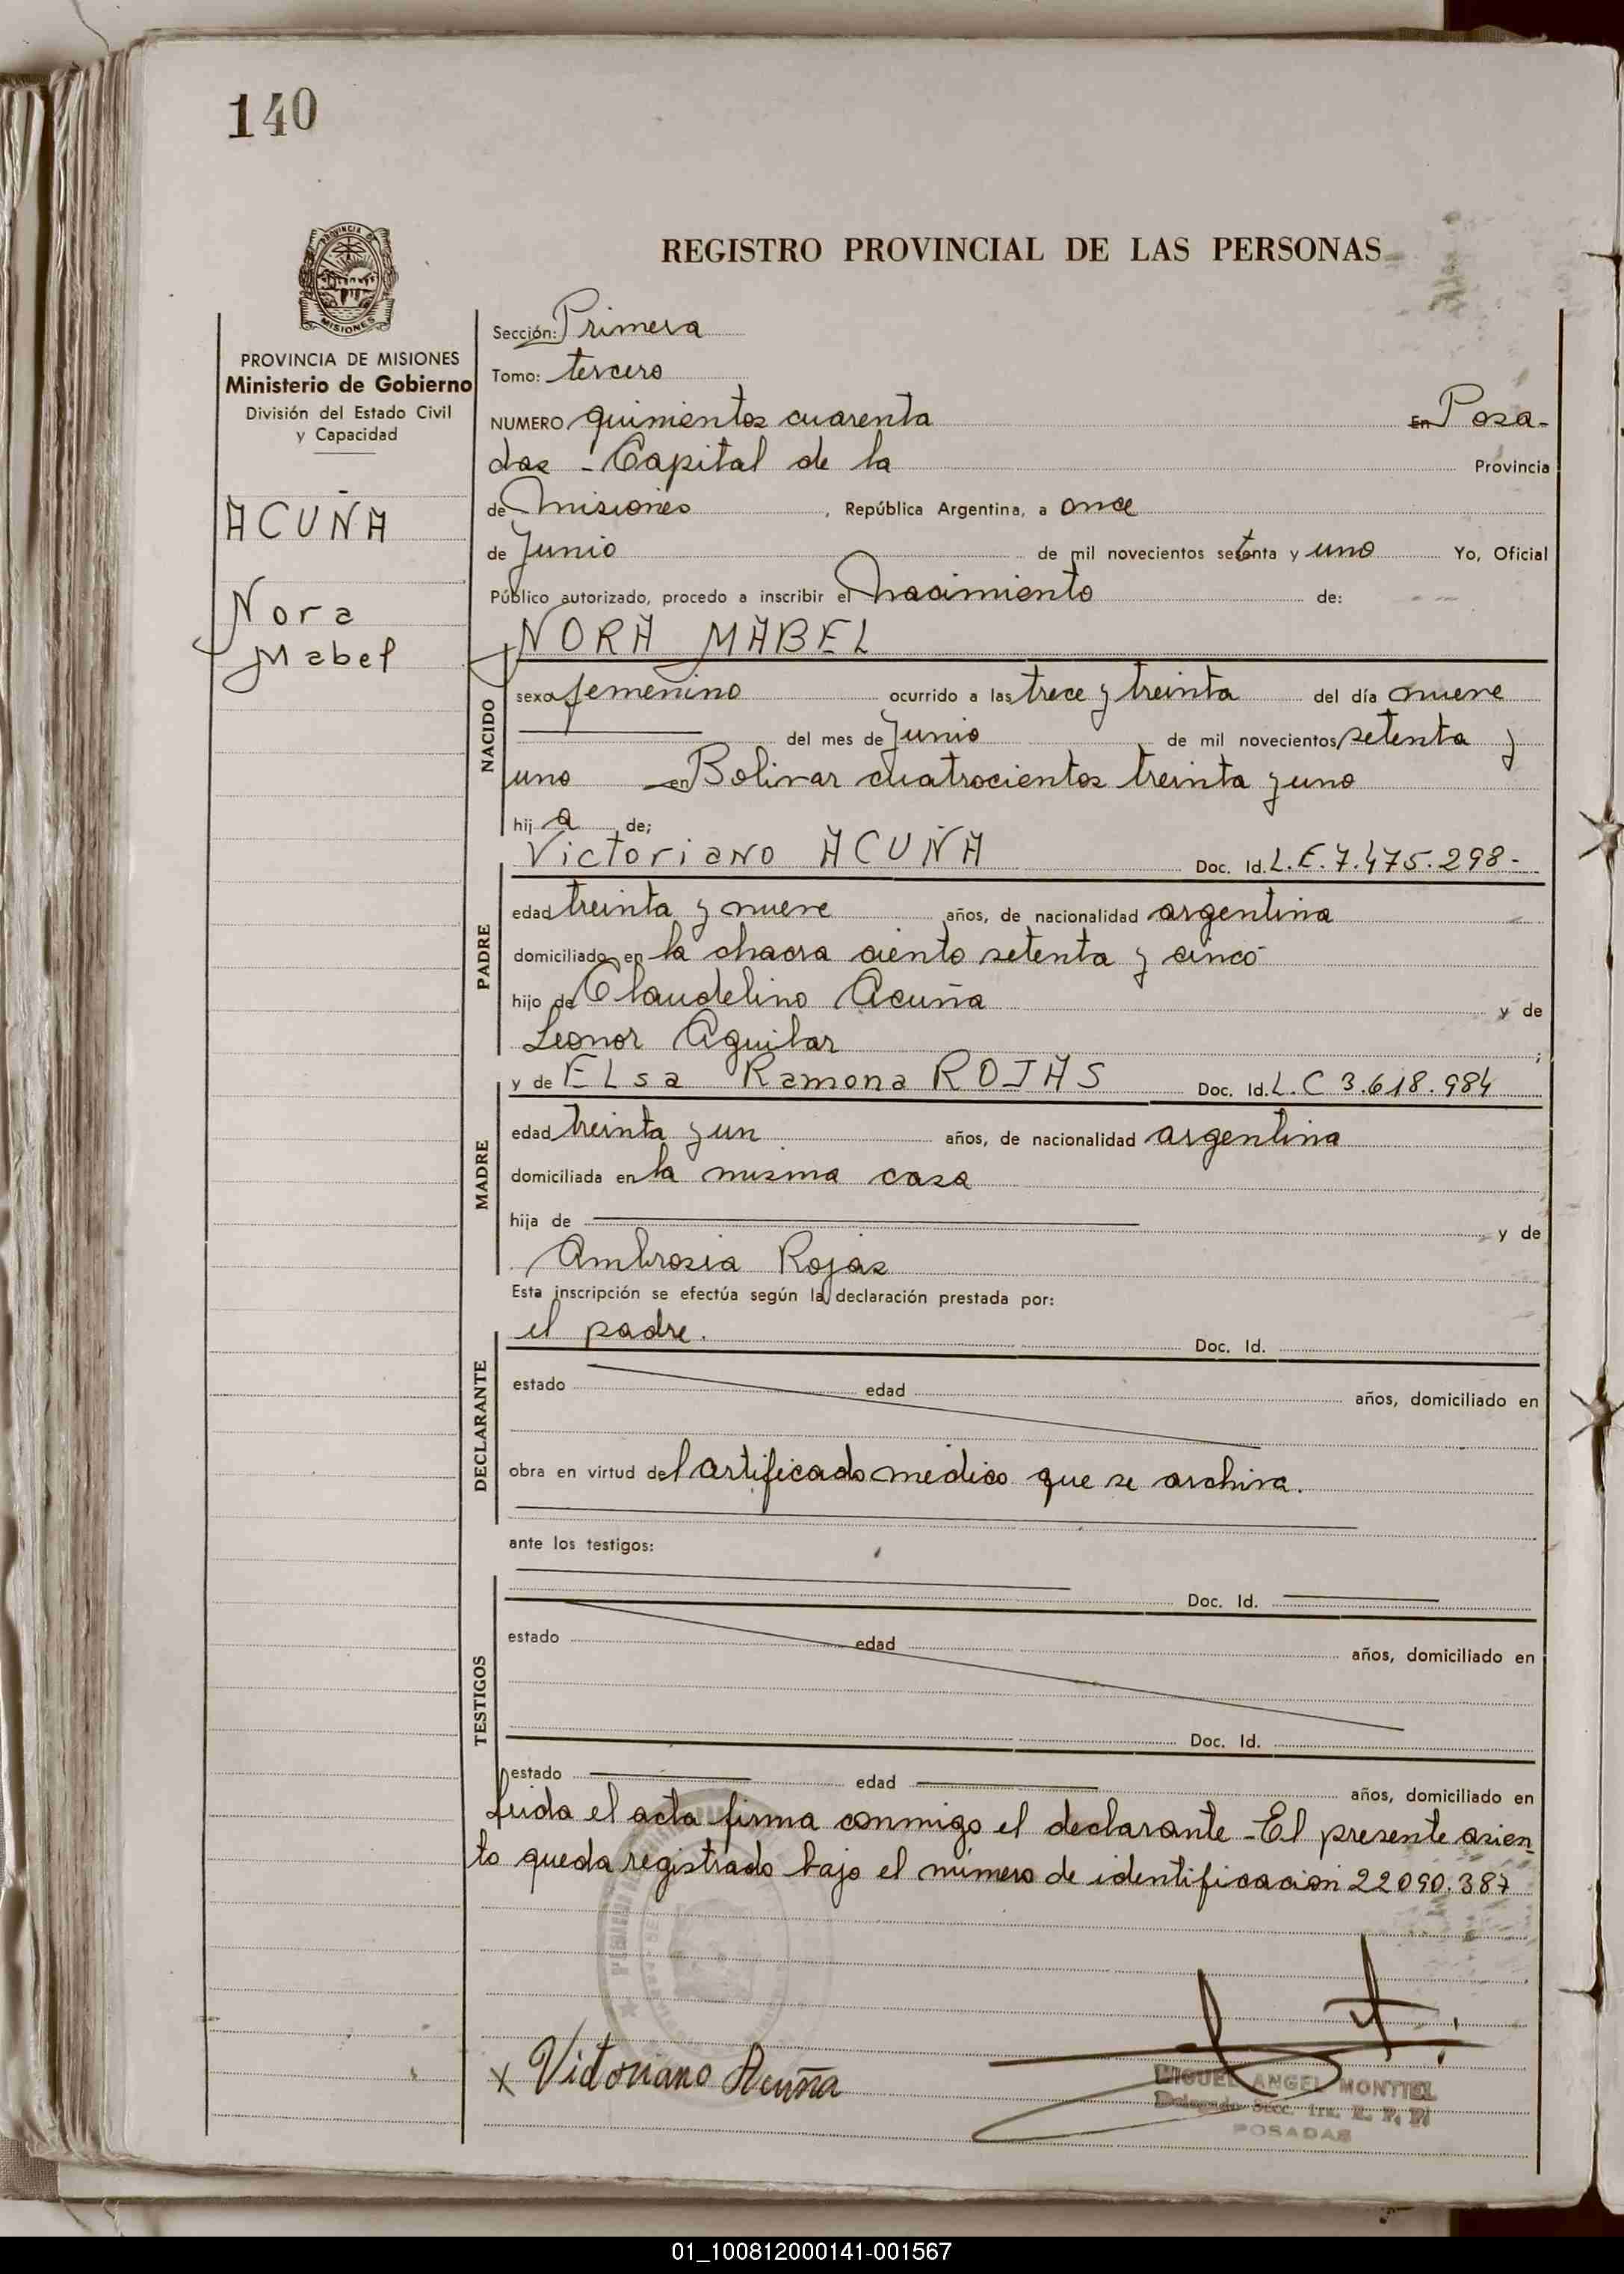 140
PROVINCIA DE
MISIONES
REGISTRO PROVINCIAL DE LAS PERSONAS
PROVINCIA DE MISIONES
Ministerio de Gobierno
División del Estado Civil
y Capacidad
ACUÑA
Nora
Mabel
Sección: Primera
Tomo: tercero
NUMERO quinientos cuarenta En Posa-
das - Capital de la Provincia
de Misiones, República Argentina, a once
de Junio de mil novecientos setenta y uno Yo, Oficial
Público autorizado, procedo a inscribir el nacimiento de:
NORA MABEL
NACIDO
sexo femenino ocurrido a las trece y treinta del día nueve
del mes de Junio de mil novecientos setenta y
uno en Bolivar cuatrocientos treinta y uno
hij a de;
Victoriano ACUÑA Doc. Id. L.E. 7.475.298-
PADRE
edad treinta y nueve años, de nacionalidad argentina
domiciliado en la chacra ciento setenta y cinco
hijo de Claudelino Acuña y de
Leonor Aguilar ;
y de ELsa Ramona ROJAS Doc. Id. L.C 3.618.984
MADRE
edad treinta y un años, de nacionalidad argentina
domiciliada en la misma casa
hija de y de
Ambrosia Rojas
Esta inscripción se efectúa según la declaración prestada por:
el padre. Doc. Id.
DECLARANTE
estado edad años, domiciliado en
obra en virtud del certificado médico que se archiva.
ante los testigos:
Doc. Id.
TESTIGOS
estado edad años, domiciliado en
Doc. Id.
estado edad años, domiciliado en
Leida el acta firma conmigo el declarante - El presente asien
to queda registrado bajo el número de identificación 22090.387
x Victoriano Acuña
MIGUEL ANGEL MONTIEL
Delegado Secc. 1ra. R. P. P.
POSADAS
01_100812000141-001567